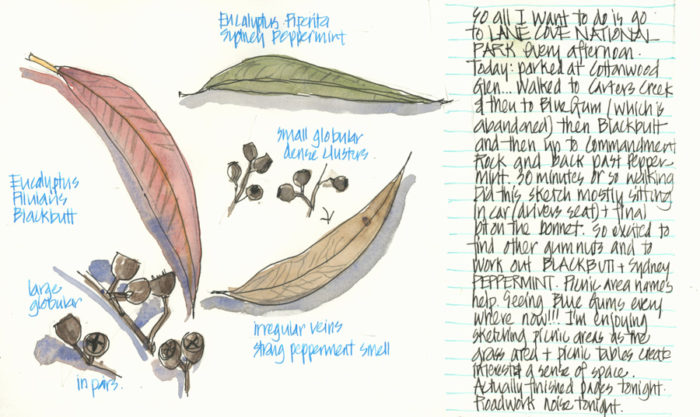 Eucalyptus Piperita
Sydney Peppermint
small globular
dense clusters.
Eucalyptus
Pilularis
Blackbutt
large
globular
in pairs.
irregular veins
strong pepperment smell
So all I want to do is go
to LANE COVE NATIONAL
PARK every afternoon.
Today: parked at Cottonwood
Glen... Walked to Carters Creek
& then to Blue Gum (which is
abandoned) then Blackbutt
and then up to Commandment
Rock and back past Pepper-
mint. 30 minutes or so walking
Did this sketch mostly sitting
in car (drivers seat) + final
bit on the bonnet. So excited to
find other gumnuts and to
work out BLACKBUTT + Sydney
PEPPERMINT. Picnic area names
help. Seeing Blue Gums every
where now!!! I'm enjoying
sketching picnic areas as the
grass area + picnic tables create
interest & a sense of space.
Actually finished pages tonight.
Roadwork noise tonight.